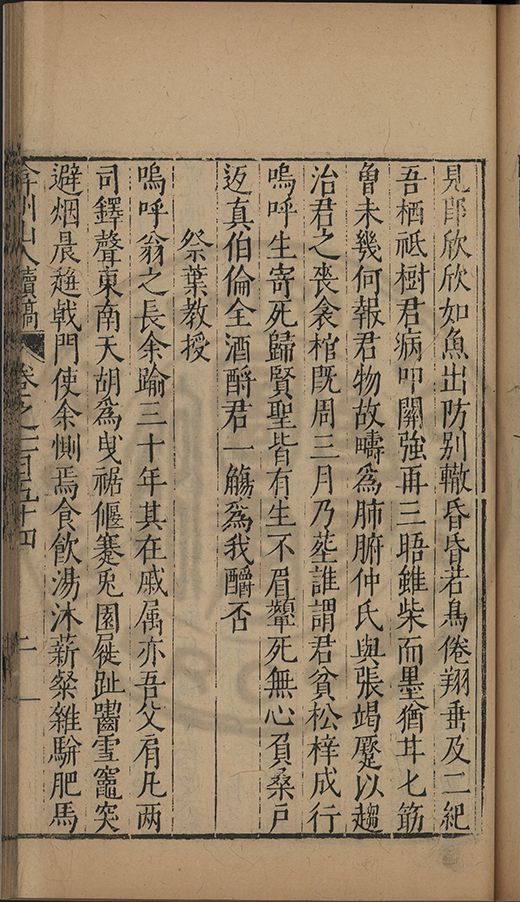 見郎欣欣如魚出防别轍昏昏若鳥倦翔垂及二紀
吾栖祗樹君病叩關強再三晤雖柴而墨猶甘七筯
曾未幾何報君物故疇為肺腑仲氏與張竭蹷以趨
治君之喪衾棺既周三月乃塟誰謂君貧松梓成行
嗚呼生寄死歸賢聖皆有生不眉顰死無心負桑戶
返真伯倫全酒酹君一觴為我釂否
祭葉教授
嗚呼翁之長余踰三十年其在戚属亦吾父肩凡两
司鐸聲東南天胡為曳裾偃蹇兎園屣趾齧雪竈突
避烟晨趍戟門使余惻焉食飲湯沐薪粲維駢肥馬
弇州山人續稿 卷之一百五十四 二